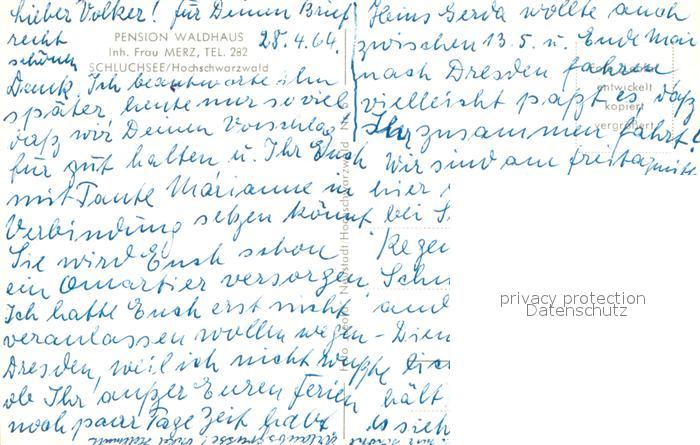 Lieber Volker! für Deinen Brief
recht
schönen
PENSION WALDHAUS
Inh. Frau MERZ, TEL. 282
SCHLUCHSEE/Hochschwarzwald
28.4.64.
Dank. Ich beantworte ihn
später, heute nur soviel
daß wir Deinen Vorschlag
für gut halten u. Ihr Euch
mit Tante Marianne in
Verbindung setzen könnt
Sie wird Euch schon
ein Quartier versorgen
Ich hatte Euch erst nicht
veranlassen wollen wegen
Dresden, weil ich nicht wußte
ob Ihr außer Euren Ferien
noch paar Tage Zeit habt
Neustadt Hochschwarzwald
Heins Gerda wollte auch
zwischen 13.5. u. Ende Mai
nach Dresden fahren
vielleicht paßt es, daß
Ihr zusammen fahrt!
Wir sind am
hier
bei S
Regen
Schn
und
Dien
hält
entwickelt
kopiert
vergrößert
privacy protection
Datenschutz